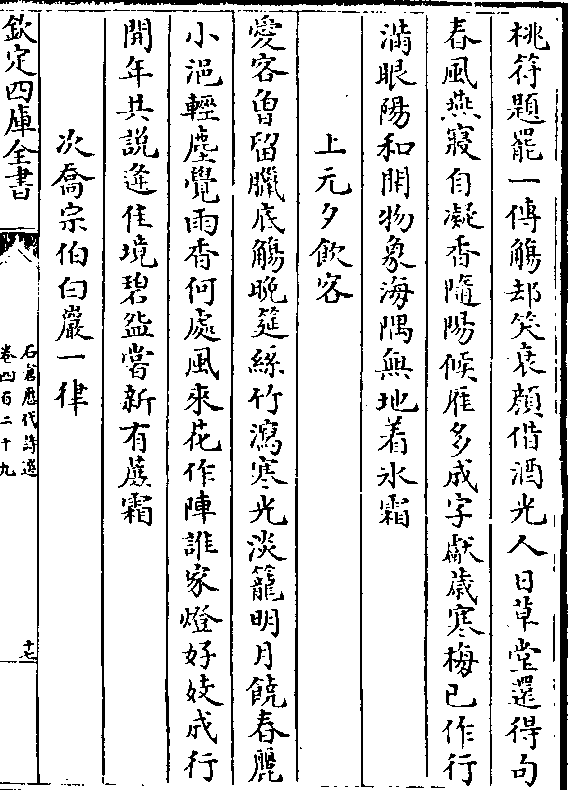 桃符題罷一傳觴却笑衰顔借酒光人日草堂還得句
春風燕寢自凝香隨陽候雁多成字獻歳寒梅已作行
滿眼陽和開物象海隅無地着氷霜
上元夕飲客
愛客曾留臘底觴晩筵絲竹瀉寒光淡籠明月饒春麗
小浥輕塵覺雨香何處風來花作陣誰家燈好妓成行
開年共說逢佳境碧盌嘗新有蔗霜
次喬宗伯白巖一律
欽定四庫全書
石倉歴代詩選
卷四百二十九
十七